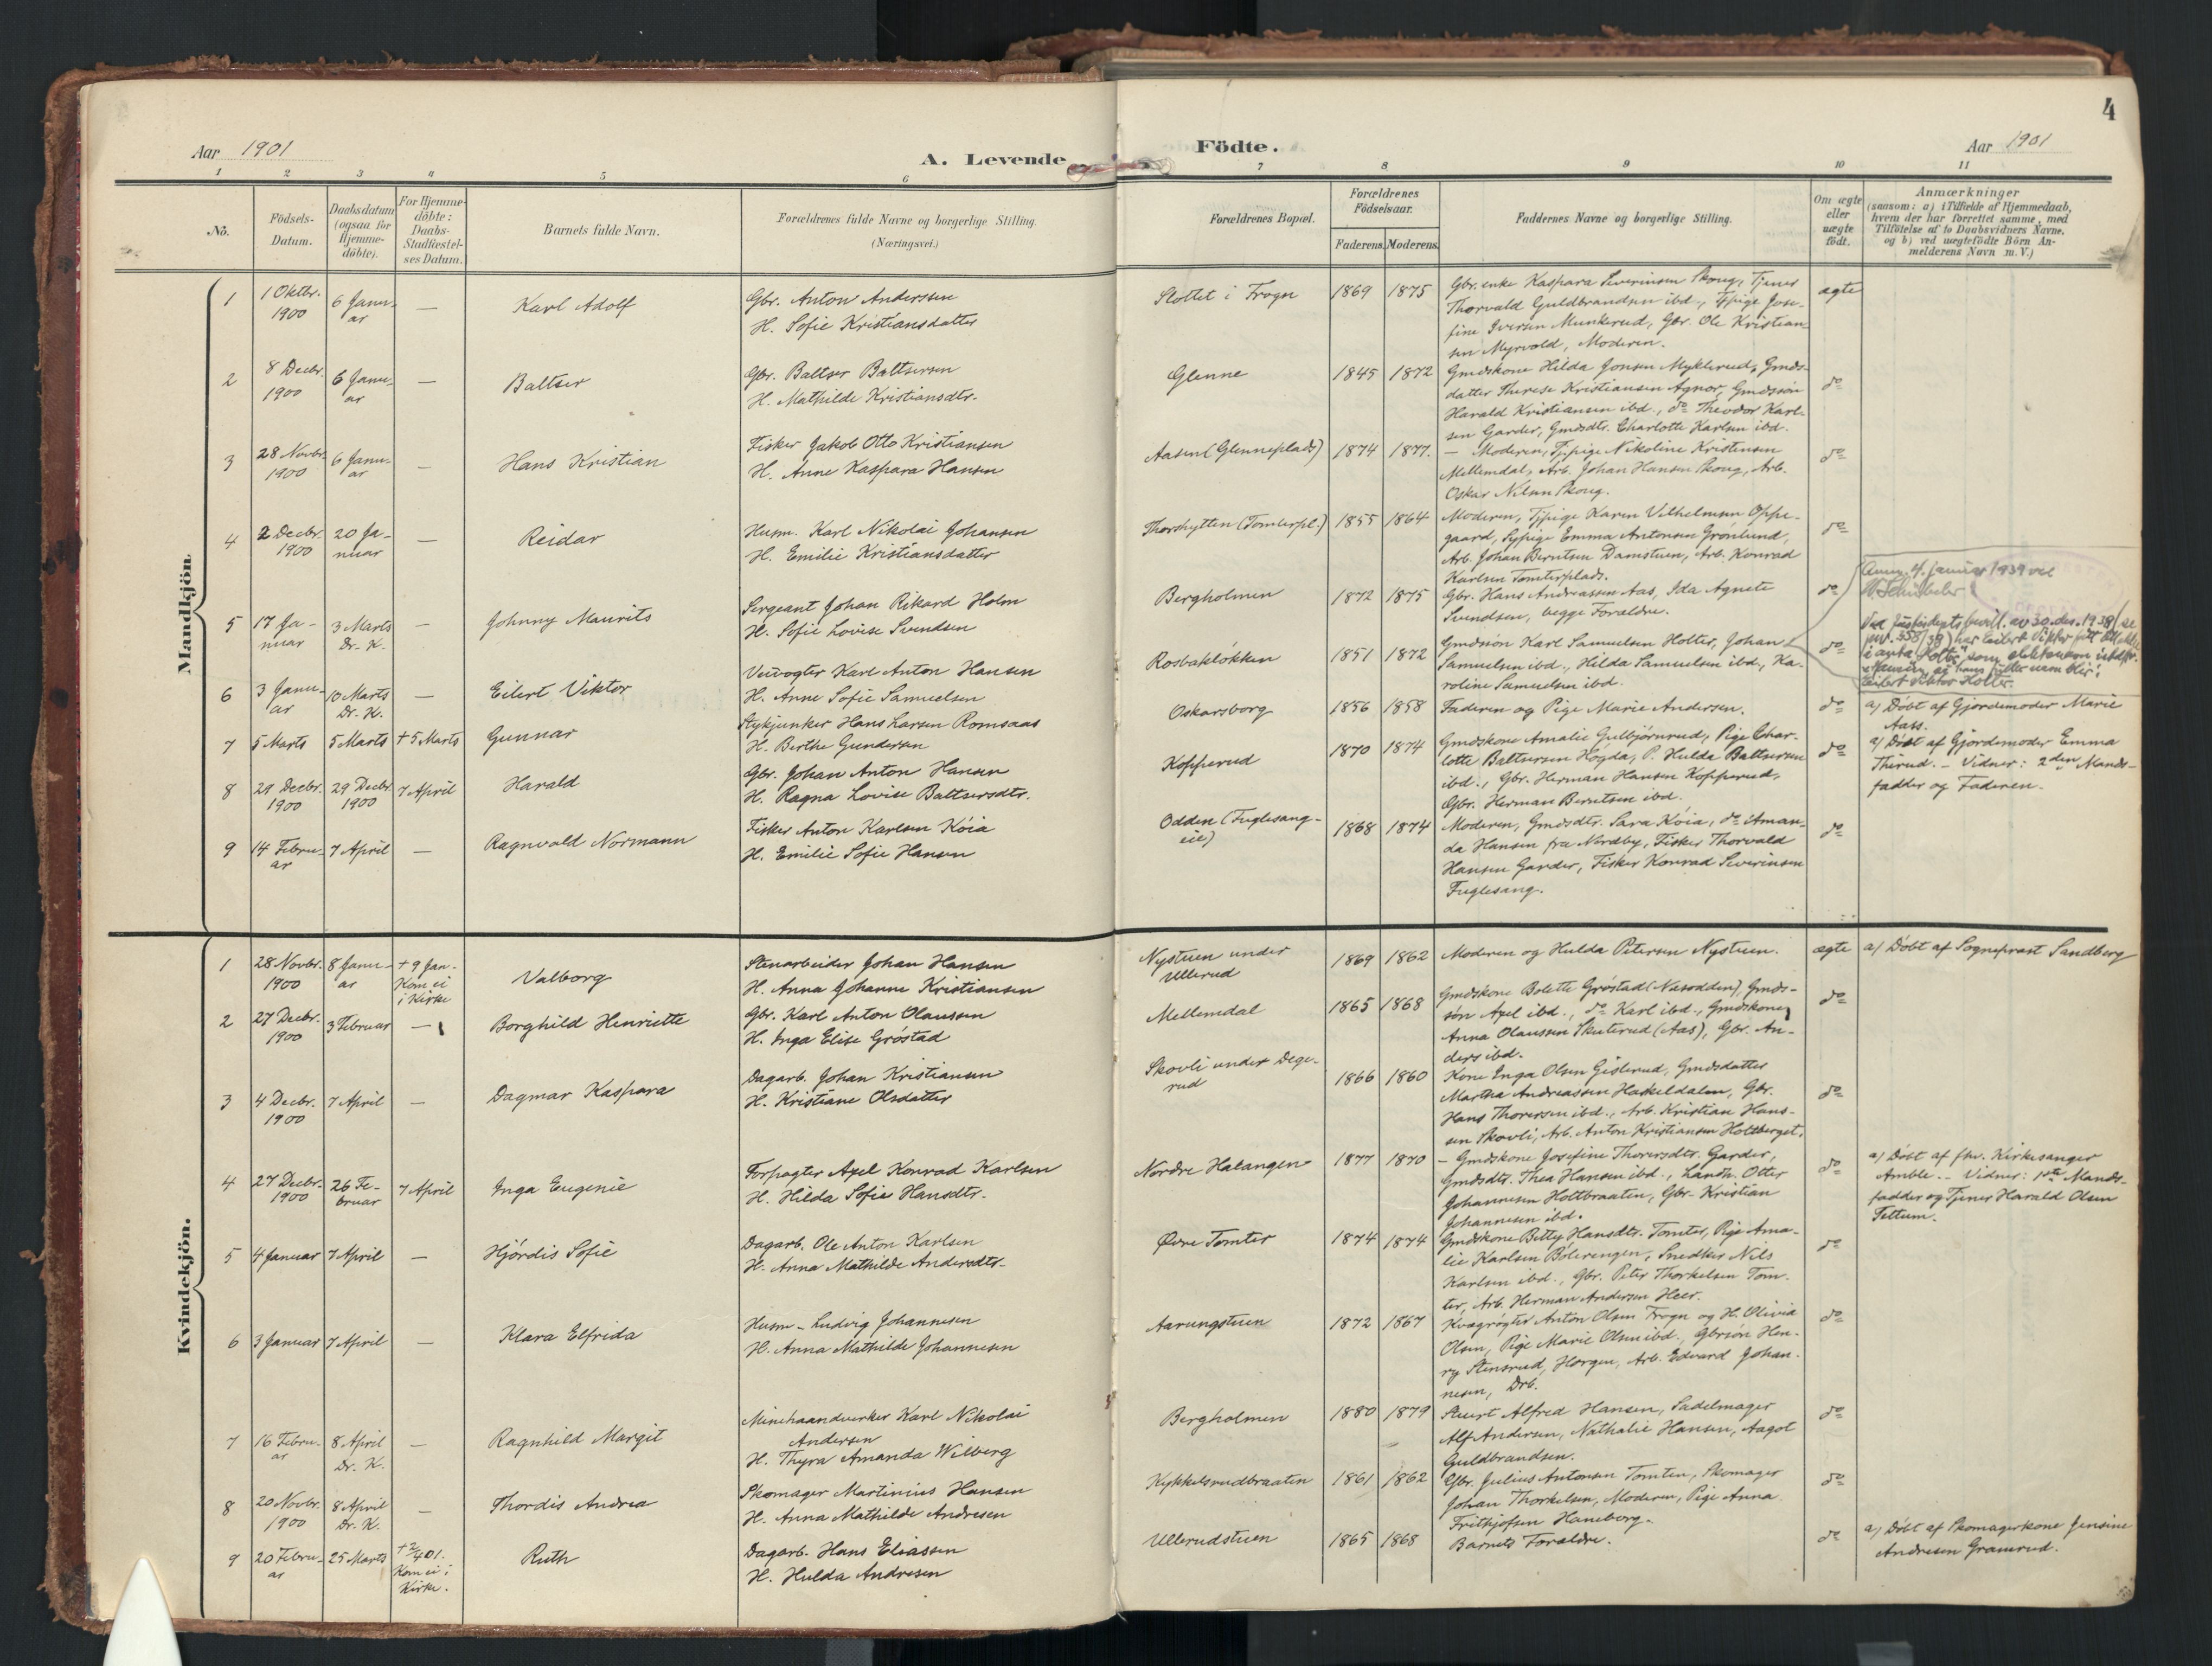 4
Aar 1901
A. Levende
Födte.
Aar 1901
1 2 3 4 5 6 7 8 9 10 11
No.
Födsels-
Datum.
Daabsdatum
(ogsaa for
Hjemme-
döbte).
For Hjemme-
döbte:
Daabs-
Stadfæstel-
ses Datum.
Barnets fulde Navn.
Forældrenes fulde Navne og borgerlige Stilling.
(Næringsvei.)
Forældrenes Bopæl.
Forældrenes
Födselsaar.
Faderens. Moderens.
Faddernes Navne og borgerlige Stilling.
Om ægte
eller
uægte
födt.
Anmærkninger
(saasom: a) i Tilfælde af Hjemmedaab,
hvem der har forrettet samme, med
Tilföielse af to Daabsvidners Navne,
og b) ved uægtefödte Börn An-
melderens Navn m. V.)
Mandkjön.
1
1 Oktbr.
1900
6 Janu-
ar
—
Karl Adolf
Gbr. Anton Anderssen
H. Sofie Kristiansdatter
Slottet i Frogn
1869 1875
Gbr. enke Kaspara Severinsen Skoug, Tjener
Thorvald Guldbrandsen ibd., Tjpige Jose-
fine Iversen Munkerud, Gbr. Ole Kristian-
sen Myrvold, Moderen.
ægte
2
8 Decbr.
1900
6 Janu-
ar
—
Baltser
Gbr. Baltser Baltsersen
H. Mathilde Kristiansdtr.
Glenne
1845 1872
Gmdskone Hilda Jonsen Myklerud, Gmds-
datter Therese Kristiansen Agnor, Gmdssön
Harald Kristiansen ibd., do Theodor Karl-
sen Garder, Gmdsdtr. Charlotte Karlsen ibd.
do
3
28 Novbr.
1900
6 Janu-
ar
—
Hans Kristian
Fisker Jakob Otto Kristiansen
H. Anne Kaspara Hansen
Aasen (Glenneplads)
1874 1877.
— Moderen, Tjpige Nikoline Kristensen
Mellemdal, Arb. Johan Hansen Skoug, Arb.
Oskar Nilsen Skoug.
do
4
2 Decbr.
1900
20 Ja-
nuar
—
Reidar
Husm. Karl Nikolai Johansen
H. Emilie Kristiansdatter
Thorshytten (Tomterpl.)
1855 1864
Moderen, Tjpige Karen Vilhelmsen Oppe-
gaard, Sypige Emma Antonsen Grönlund,
Arb. Johan Berntsen Damstuen, Arb. Konrad
Karlsen Tomterplads.
do
5
17 Ja-
nuar
3 Marts
Dr. K.
—
Johnny Maurits
Sergeant Johan Rikard Holm
H. Sofie Lovise Svendsen
Bergholmen
1872 1875
Gbr. Hans Andreassen Aas, Ida Agnete
Svendsen, begge Forældre.
do
6
3 Janu-
ar
10 Marts
Dr. K.
—
Eilert Viktor
Veivogter Karl Anton Hansen
H. Anne Sofie Samuelsen
Rosbaklökken
1851 1872
Gmdssön Karl Samuelsen Holter, Johan
Samuelsen ibd., Hilda Samuelsen ibd., Ka-
roline Samuelsen ibd.
do
Anm. 4. januar 1939 ved
Ved Justisdepts bevill. av 30. des. 1938 (se
jnr. 558/39) har Eilert Viktor fått
i anta "Holter" som slektsnavn istedfor
"Hansen", så hans fulde navn blir:
Eilert Viktor Holter.
7
5 Marts
5 Marts
+ 5 Marts
Gunnar
Stykjunker Hans Larsen Romsaas
H. Berthe Gundersen
Oskarsborg
1856 1858
Faderen og Pige Marie Andersen.
do
a) Döbt af Gjordemoder Marie
Aass.
8
29 Decbr.
1900
29 Decbr.
1900
7 April
Harald
Gbr. Johan Anton Hansen
H. Ragna Lovise Baltsersdtr.
Kopperud
1870 1874
Gmdskone Amalie Gulbjörnrud, Pige Char-
lotte Baltsersen Högda, P. Hulda Baltsersen
ibd., Gbr. Herman Hansen Kopperud,
Gbr. Herman Berntsen ibd.
do
a) Döbt af Gjordemoder Emma
Therud. — Vidner: 2den Mands-
fadder og Faderen.
9
14 Febru-
ar
7 April
—
Ragnvald Normann
Fisker Anton Karlsen Köia
H. Emilie Sofie Hansen
Odden (Fuglesang-
eie)
1868 1874
Moderen, Gmdsdtr. Sara Köia, do Aman-
da Hansen fra Nordby, Fisker Thorvald
Hansen Garder, Fisker Konrad Severinsen
Fuglesang.
do
Kvindekjön.
1
28 Novbr.
1900
8 Janu-
ar
+ 9 Jan.
Kom ei
i Kirke
Valborg
Stenarbeider Johan Hansen
H. Anna Johanne Kristiansen
Nystuen under
Ullerud
1869 1862
Moderen og Hulda Petersen Nystuen.
ægte
a) Döbt af Sogneprest Sandberg
2
27 Decbr.
1900
3 Februar
—
Borghild Henriette
Gbr. Karl Anton Olaussen
H. Inga Elise Gröstad
Mellemdal
1865 1868
Gmdskone Bolette Gröstad (Nesodden), Gmds-
sön Axel ibd., do Karl ibd., Gmdskone
Anna Olaussen Skuterud (Aas), Gbr. An-
ders ibd.
do
3
4 Decbr.
1900
7 April
—
Dagmar Kaspara
Dagarb. Johan Kristiansen
H. Kristiane Olsdatter
Skovli under Dege-
rud
1866 1860
Kone Inga Olsen Gislerud, Gmdsdatter
Martha Andreassen Haskeldalen, Gbr.
Hans Thoresen ibd., Arb. Kristian Hans-
sen Skovli, Arb. Anton Kristiansen Holtberget.
do
4
27 Decbr.
1900
26 Fe-
bruar
7 April
Inga Eugenie
Forpagter Axel Konrad Karlsen
H. Hilda Sofie Hansdtr.
Nordre Halangen
1877 1870
— Gmdskone Josefine Thorersdtr. Garder,
Gmdsdtr. Thea Hansen ibd., Landh. Otter
Johannesen Holtbraaten, Gbr. Kristian
Johannesen ibd.
do
a) Döbt af fhv. Kirkesanger
Amble. — Vidner: 1ste Mands-
fadder og Tjener Harald Olsen
Tettum.
5
4 Januar
7 April
—
Hjördis Sofie
Dagarb. Ole Anton Karlsen
H. Anna Mathilde Andersdtr.
Øvre Tomter
1874 1874
Gmdskone Betty Hansdtr. Tomter, Pige Ama-
lie Karlsen Bölerengen, Snedker Nils
Karlsen ibd., Gbr. Peter Thorkelsen Tom-
ter, Arb. Herman Andersen Heer.
do
6
3 Januar
7 April
—
Klara Elfrida
Husm. Ludvig Johannesen
H. Anna Mathilde Johannesen
Aarungstuen
1872 1867
Kvægrögter Anton Olsen Frogn og H. Olivia
Olsen, Pige Marie Olsen ibd., Gbrsön Hen-
ry Stensrud, Horgen, Arb. Edvard Johan-
nesen, Drb.
do
7
16 Febru-
ar
8 April
Dr. K.
—
Ragnhild Margit
Minehaandverker Karl Nikolai
Andersen
H. Thyra Amanda Wilberg
Bergholmen
1880 1879
Stuert Alfred Hansen, Sadelmager
Alf Andersen, Nathalie Hansen, Aagot
Guldbrandsen.
do
8
20 Novbr.
1900
8 April
Dr. K.
—
Thordis Andrea
Skomager Martinius Hansen
H. Anna Mathilde Andresen
Kykkelsrudbraaten
1861 1862
Gbr. Julius Antonsen Tomten, Skomager
Johan Thorkelsen, Moderen, Pige Anna
Frithjofsen Haneborg.
do
9
20 Febru-
ar
25 Marts
+ 2/4 01.
Kom ei i
Kirke.
Ruth
Dagarb. Hans Eliassen
H. Hulda Andresen
Ullerudstuen
1865 1868
Barnets Forældre.
do
a) Döbt af Skomagerkone Jensine
Andresen Granerud.